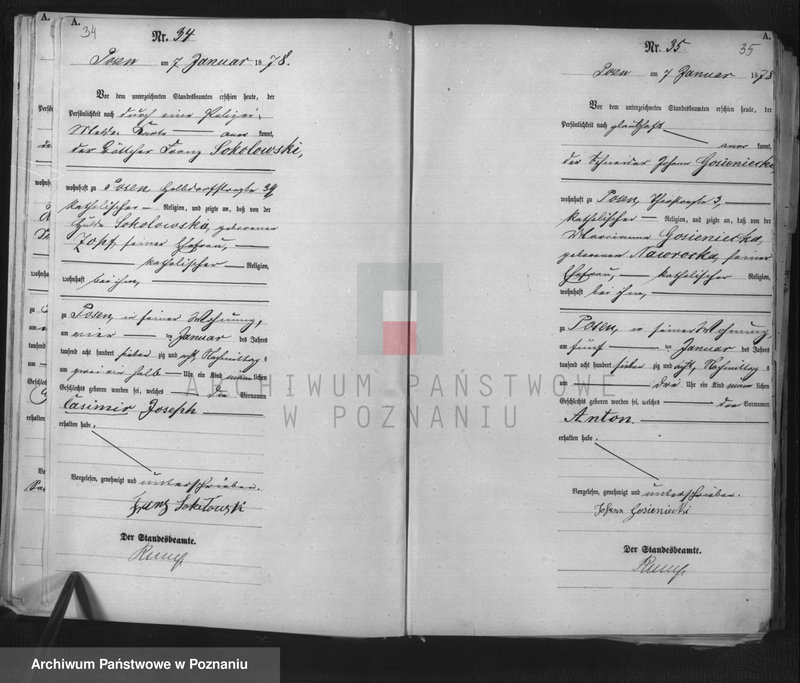 A.
34
Nr. 34
Posen am 7 Januar 1878.
Vor dem unterzeichneten Standesbeamten erschien heute, der
Persönlichkeit nach durch eine Polizei-
Melde Karte aner kannt,
der Böttcher Franz Sokolowski,
wohnhaft zu Posen, Halbdorfstraße 34
katholischer Religion, und zeigte an, daß von der
Hulda Sokolowska, geborenen
Zopf seiner Ehefrau,
katholischer Religion,
wohnhaft bei ihm,
zu Posen, in seiner Wohnung,
am vier ten Januar des Jahres
tausend acht hundert sieben zig und acht, Nachmittags
um zwei ein halb Uhr ein Kind männ lichen
Geschlechts geboren worden sei, welches die Vornamen
Casimir Joseph
erhalten habe.
Vorgelesen, genehmigt und unterschrieben.
Franz Sokolowski
Der Standesbeamte.
A.
35
Nr. 35.
Posen am 7 Januar 1878
Vor dem unterzeichneten Standesbeamten erschien heute, der
Persönlichkeit nach glaubhaft
aner kannt,
der Schneider Johann Gosieniecki,
wohnhaft zu Posen, Thorstraße 3,
katholischer Religion, und zeigte an, daß von der
Marianna Gosieniecka,
geborenen Nawrocka, seiner
Ehefrau, katholischer Religion,
wohnhaft bei ihm,
zu Posen, in seiner Wohnung,
am fünf ten Januar des Jahres
tausend acht hundert sieben zig und acht, Nachmittags
um drei Uhr ein Kind männ lichen
Geschlechts geboren worden sei, welches den Vornamen
Anton
erhalten habe.
Vorgelesen, genehmigt und unterschrieben.
Johann Gosieniecki
Der Standesbeamte.
ARCHIWUM PAŃSTWOWE
W POZNANIU
Archiwum Państwowe w Poznaniu